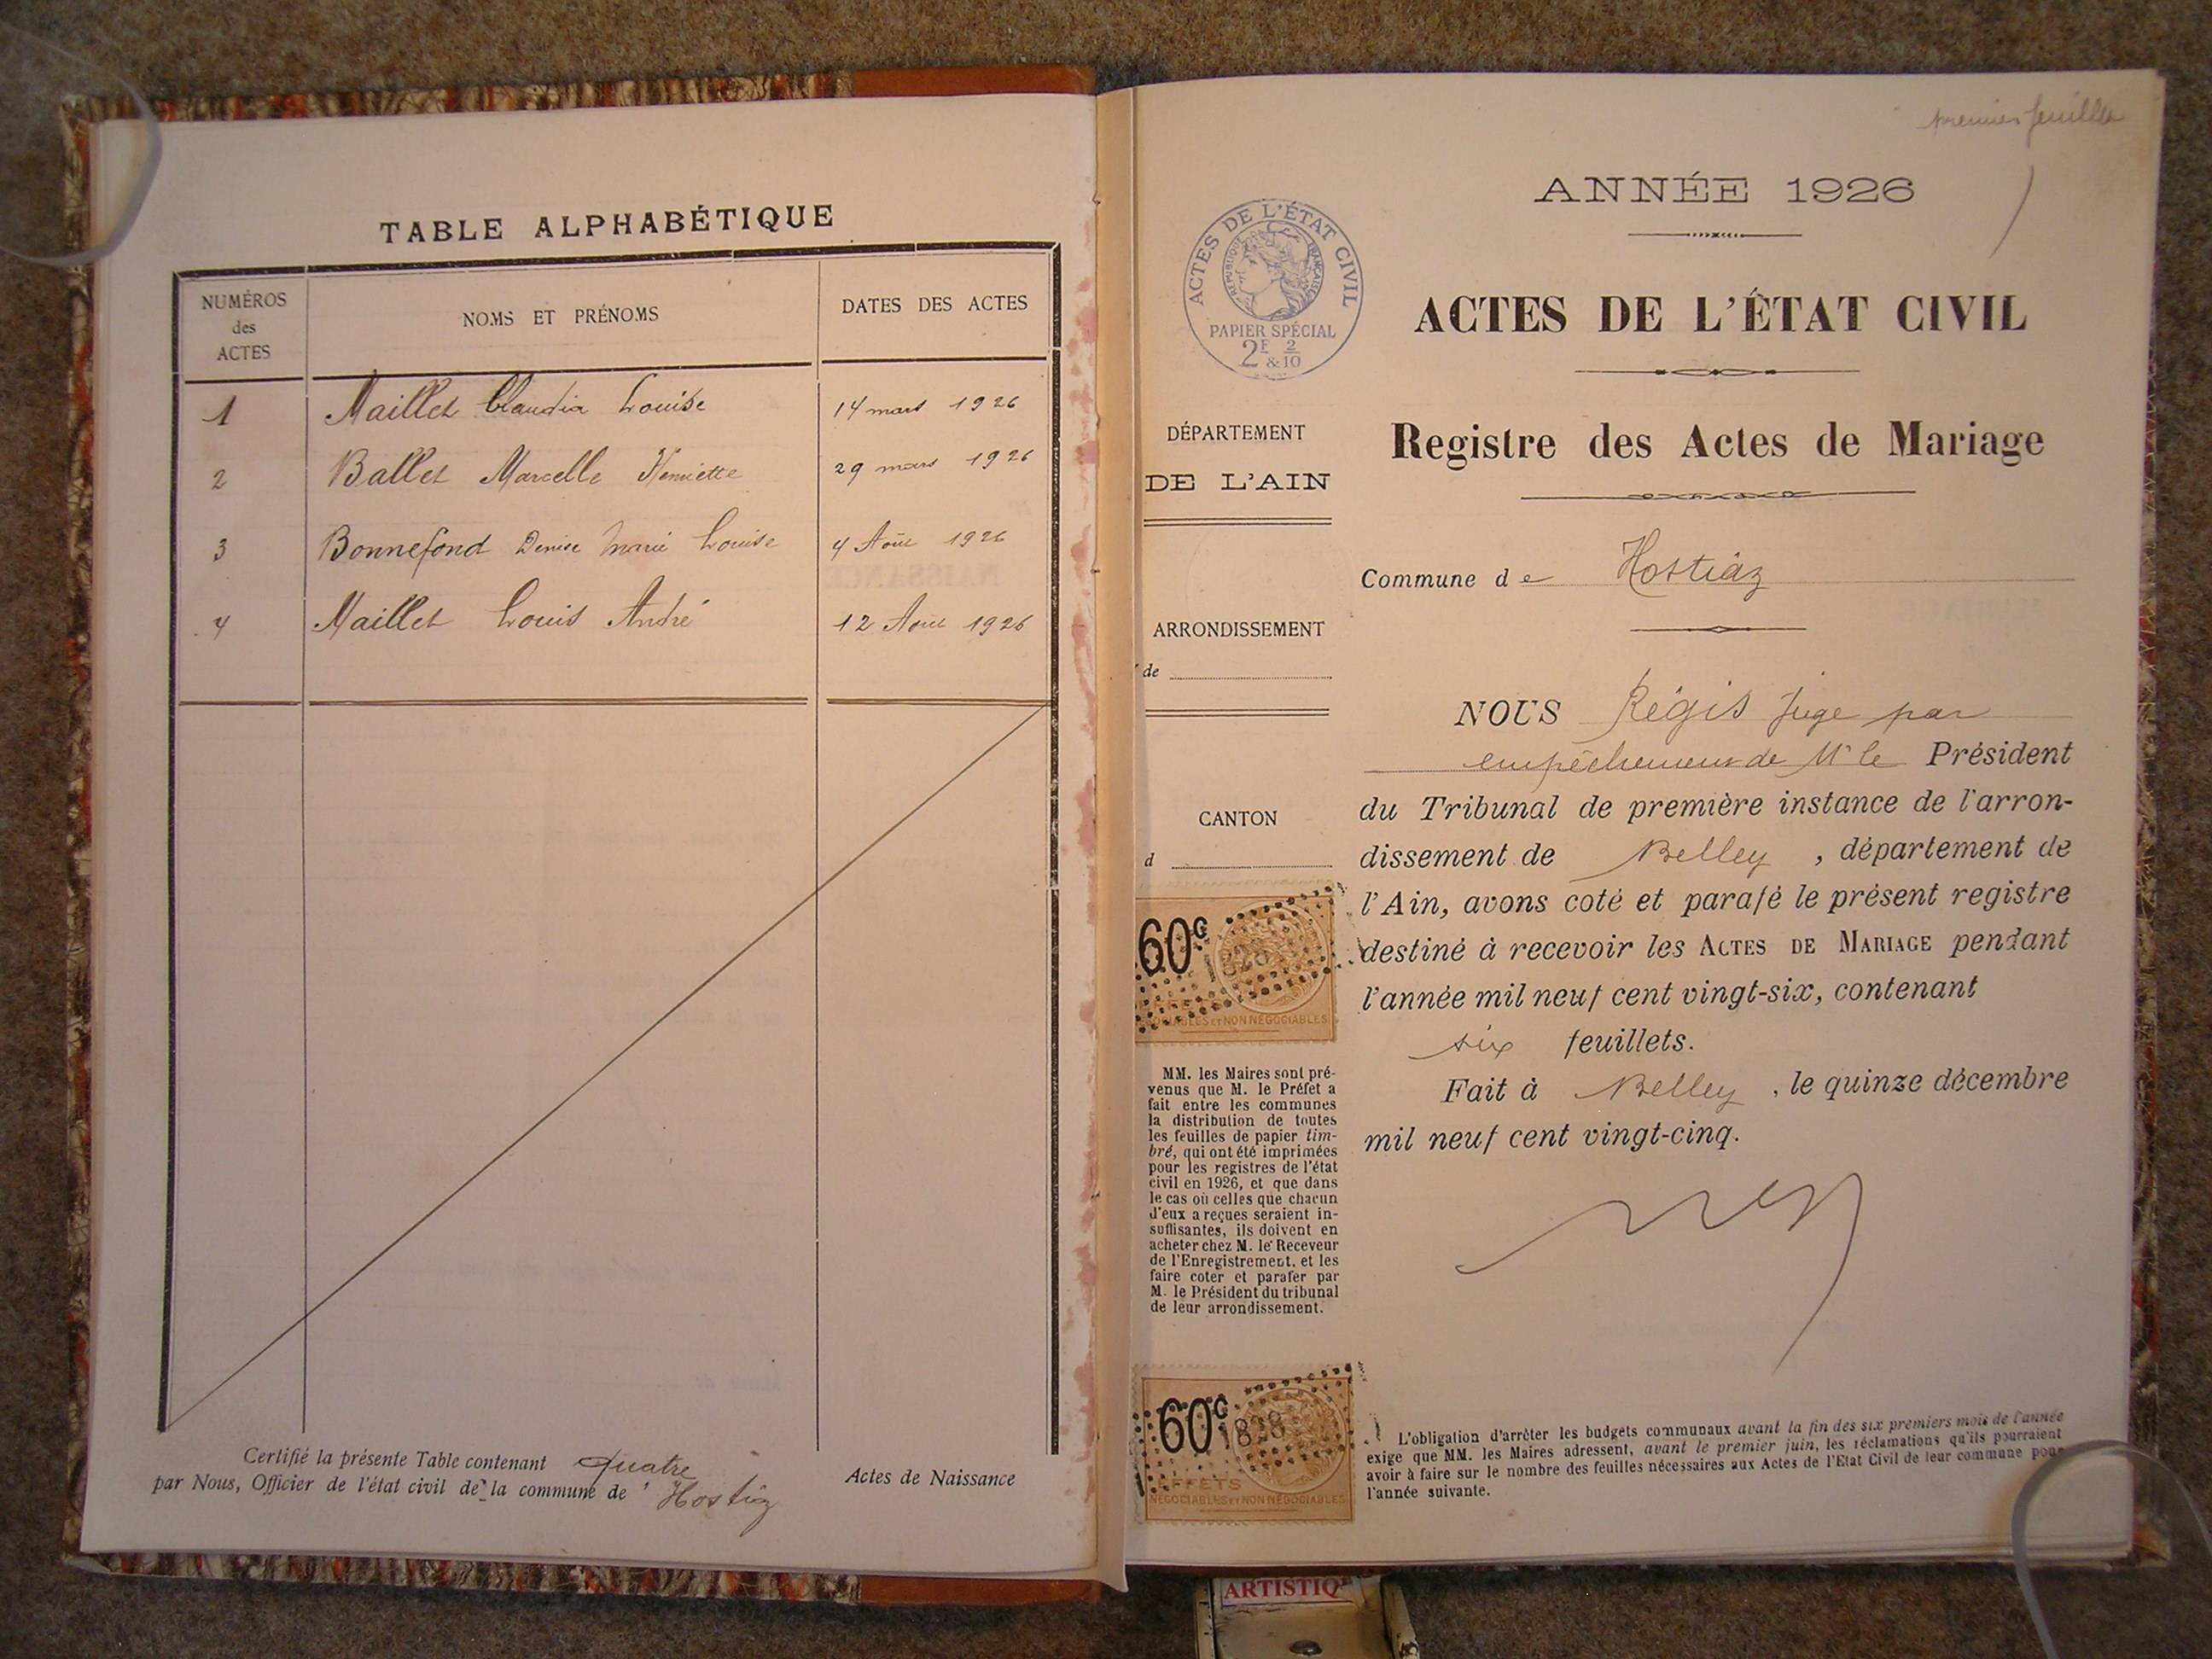 TABLE ALPHABÉTIQUE
NUMÉROS
des
ACTES
NOMS ET PRÉNOMS
DATES DES ACTES
1 Maillet Claudia Louise 14 mars 1926
2 Ballet Marcelle Henriette 29 mars 1926
3 Bonnefond Denise Marie Louise 4 Août 1926
4 Maillet Louis André 12 Août 1926
Certifié la présente Table contenant quatre
par Nous, Officier de l'état civil de la commune de Hostiaz
Actes de Naissance
premier feuillet
ANNÉE 1926
ACTES DE L'ÉTAT CIVIL
RÉPUBLIQUE FRANÇAISE
PAPIER SPÉCIAL
2F & 2/10
ACTES DE L'ÉTAT CIVIL
Registre des Actes de Mariage
DÉPARTEMENT
DE L'AIN
Commune de Hostiaz
ARRONDISSEMENT
de
CANTON
d
NOUS Régis juge par
empêchement de Mr le Président
du Tribunal de première instance de l'arron-
dissement de Belley, département de
l'Ain, avons coté et parafé le présent registre
destiné à recevoir les ACTES DE MARIAGE pendant
l'année mil neuf cent vingt-six, contenant
six feuillets.
Fait à Belley, le quinze décembre
mil neuf cent vingt-cinq.
60c
NÉGOCIABLES ET NON NÉGOCIABLES
MM. les Maires sont pré-
venus que M. le Préfet a
fait entre les communes
la distribution de toutes
les feuilles de papier tim-
bré, qui ont été imprimées
pour les registres de l'état
civil en 1926, et que dans
le cas où celles que chacun
d'eux a reçues seraient in-
suffisantes, ils doivent en
acheter chez M. le Receveur
de l'Enregistrement, et les
faire coter et parafer par
M. le Président du tribunal
de leur arrondissement.
60c
1828
EFFETS
NÉGOCIABLES ET NON NÉGOCIABLES
L'obligation d'arrêter les budgets communaux avant la fin des six premiers mois de l'année
exige que MM. les Maires adressent, avant le premier juin, les réclamations qu'ils pourraient
avoir à faire sur le nombre des feuilles nécessaires aux Actes de l'Etat Civil de leur commune pour
l'année suivante.
ARTISTIQ